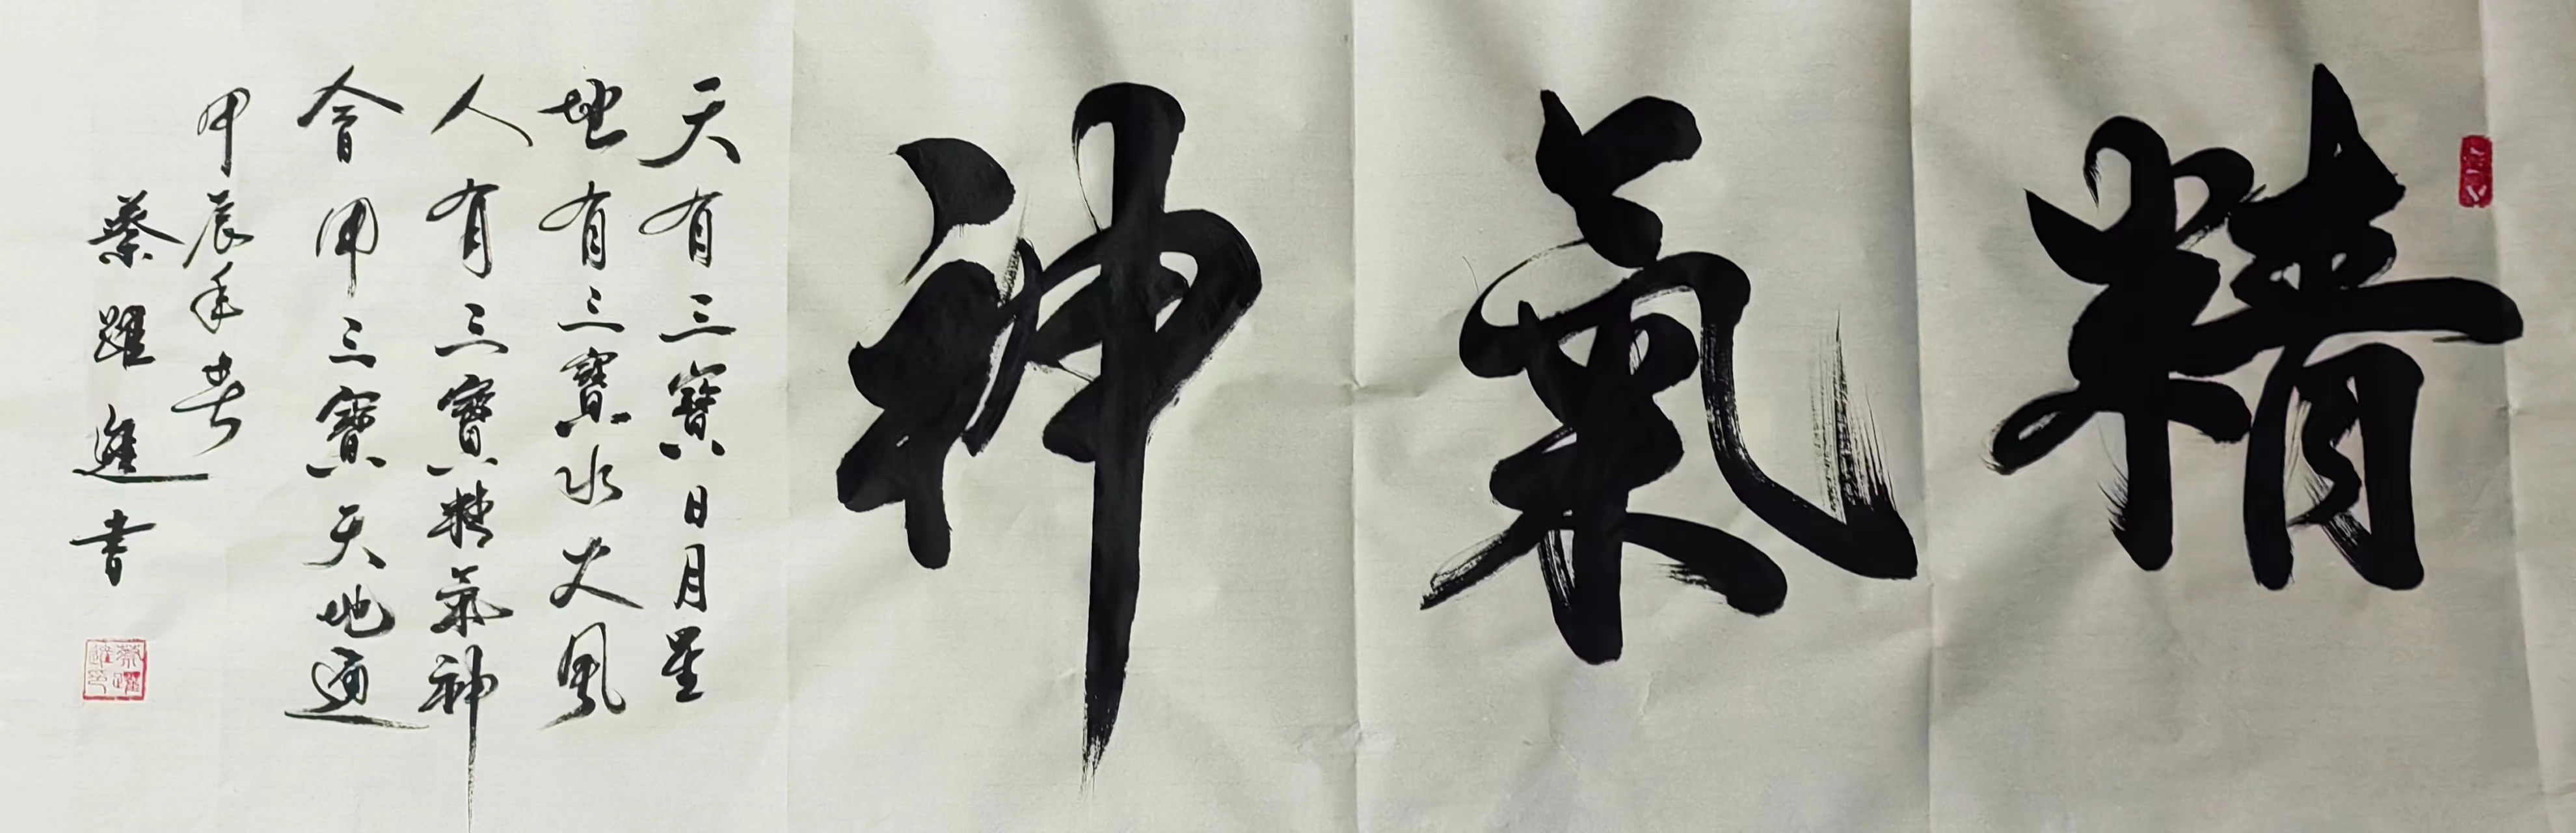 精氣神
天有三寶日月星
地有三寶水火風
人有三寶精氣神
會用三寶天地通
甲辰年春
蔡躍進書
蔡躍進印